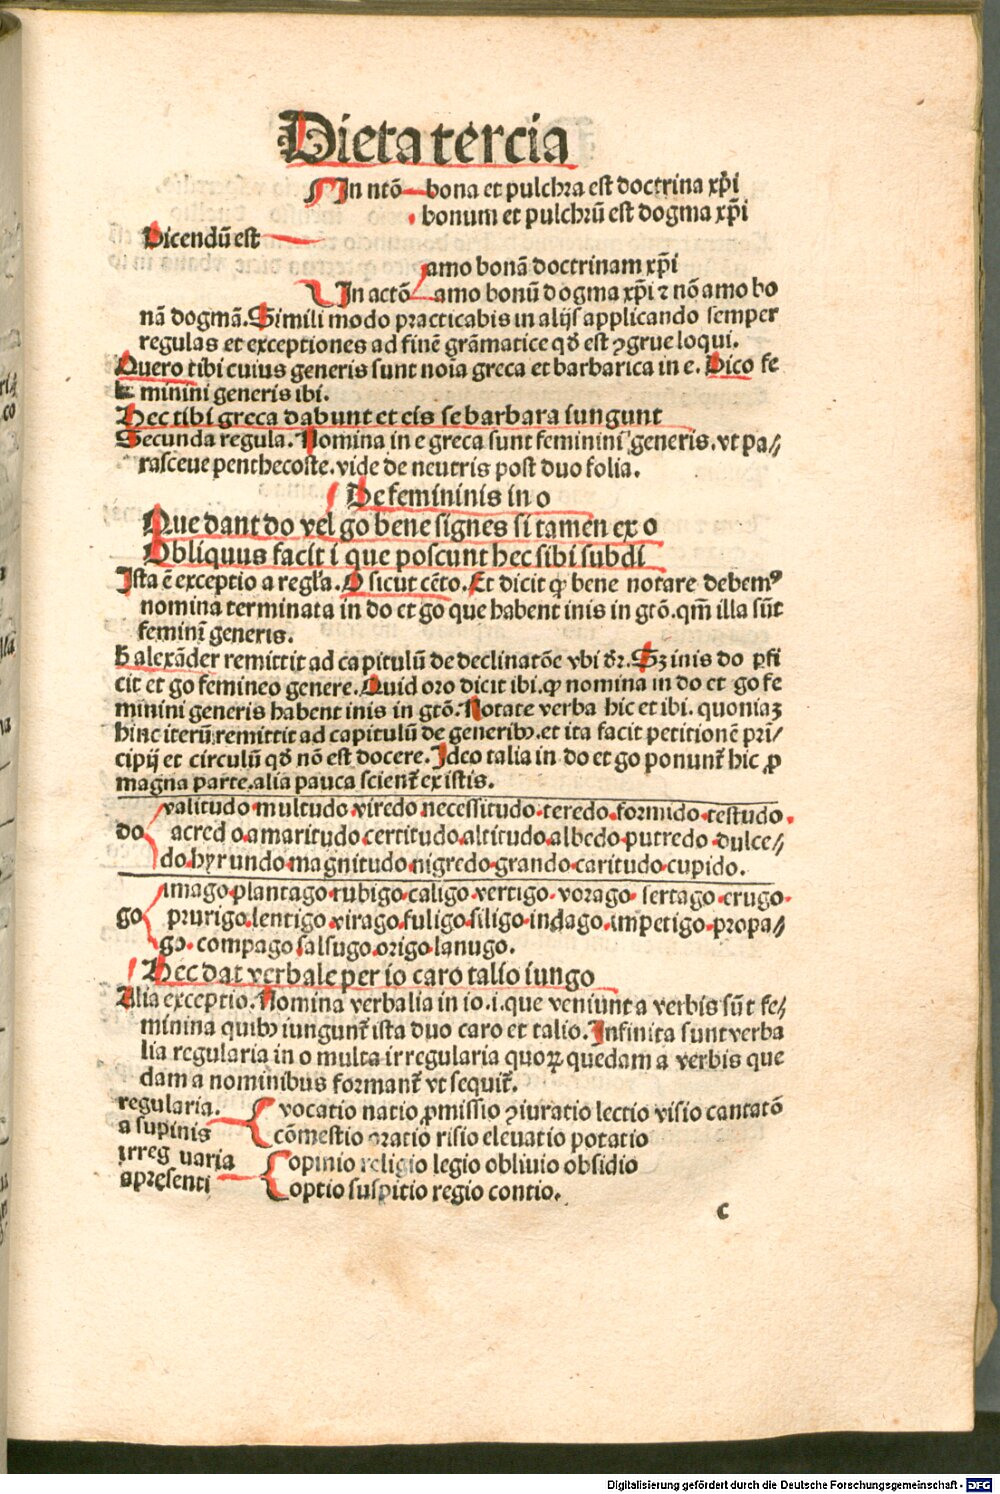 Dieta tercia
In ntō bona et pulchra est doctrina xp̄i
bonum et pulchrū est dogma xp̄i
Dicendū est
amo bonā doctrinam xp̄i
In actō amo bonū dogma xp̄i ⁊ nō amo bo
nā dogmā. Simili modo practicabis in alijs applicando semper
regulas et exceptiones ad finē grāmatice qd̄ est ꝯgrue loqui.
Quero tibi cuius generis sunt noīa greca et barbarica in e. Dico fe
minini generis ibi.
Hec tibi greca dabunt et eis se barbara iungunt
Secunda regula. Nomina in e greca sunt feminini generis. vt pa⸗
rasceue penthecoste. vide de neutris post duo folia.
De femininis in o
Que dant do vel go bene signes si tamen ex o
Obliquus facit i que poscunt hec sibi subdi
Ista ē exceptio a regl'a. O sicut cēto. Et dicit ꝙ bene notare debemꝰ
nomina terminata in do et go que habent inis in gtō. qm̄ illa sūt
feminī generis.
H̄ alexāder remittit ad capitulū de declinatōe vbi dr̄. Sꝫ inis do ꝑfi
cit et go femineo genere. Quid oro dicit ibi. ꝙ nomina in do et go fe
minini generis habent inis in gtō. Notate verba hic et ibi. quoniaꝫ
hinc iterū remittit ad capitulū de generibꝫ. et ita facit petitionē prī⸗
cipij et circulū qd̄ nō est docere. Ideo talia in do et go ponunt᷑ hic ꝓ
magna parte. alia pauca scient᷑ ex istis.
valitudo multudo viredo necessitudo teredo formido testudo
do acredo amaritudo certitudo altitudo albedo putredo dulce⸗
do hyrundo magnitudo nigredo grando caritudo cupido.
imago plantago rubigo caligo vertigo vorago sertago erugo
go prurigo lentigo virago fuligo siligo indago impetigo propa⸗
go compago salsugo origo lanugo.
Hec dat verbale per io caro talio iungo
Alia exceptio. Nomina verbalia in io .i. que veniunt a verbis sūt fe⸗
minina quibꝫ iungunt᷑ ista duo caro et talio. Infinita sunt verba
lia regularia in o multa irregularia quoꝝ quedam a verbis que
dam a nominibus formant᷑ vt sequit᷑.
regularia. vocatio natio ꝓmissio ꝯiuratio lectio visio cantatō
a supinis cōmestio oratio risio eleuatio potatio
irreg uaria opinio religio legio obliuio obsidio
a presenti optio suspitio regio contio.
c
Digitalisierung gefördert durch die Deutsche Forschungsgemeinschaft - DFG